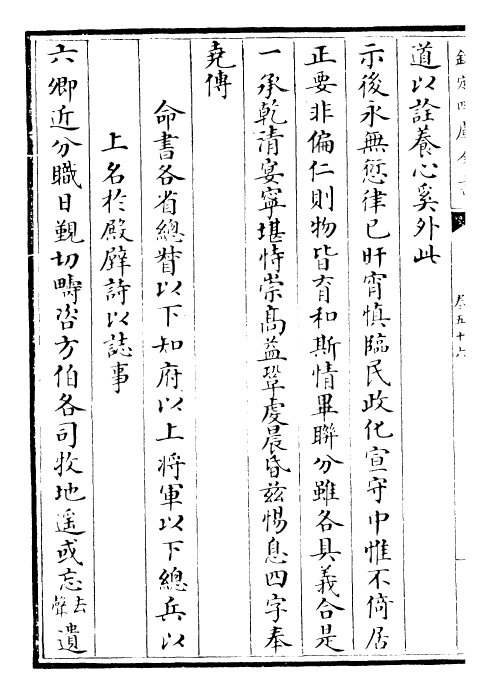 欽定四庫全書
卷五十六
道以詮養心奚外此
示後永無愆律已旰宵慎臨民政化宣守中惟不倚居
正要非偏仁則物皆育和斯情畢聯分雖各具義合是
一承乾清宴寧堪恃崇高益鞏虔晨昏兹惕息四字奉
堯傳
命書各省總督以下知府以上將軍以下總兵以
上名於殿壁詩以誌事
六卿近分職日覲切疇咨方伯各司牧地遥或忘去聲遺